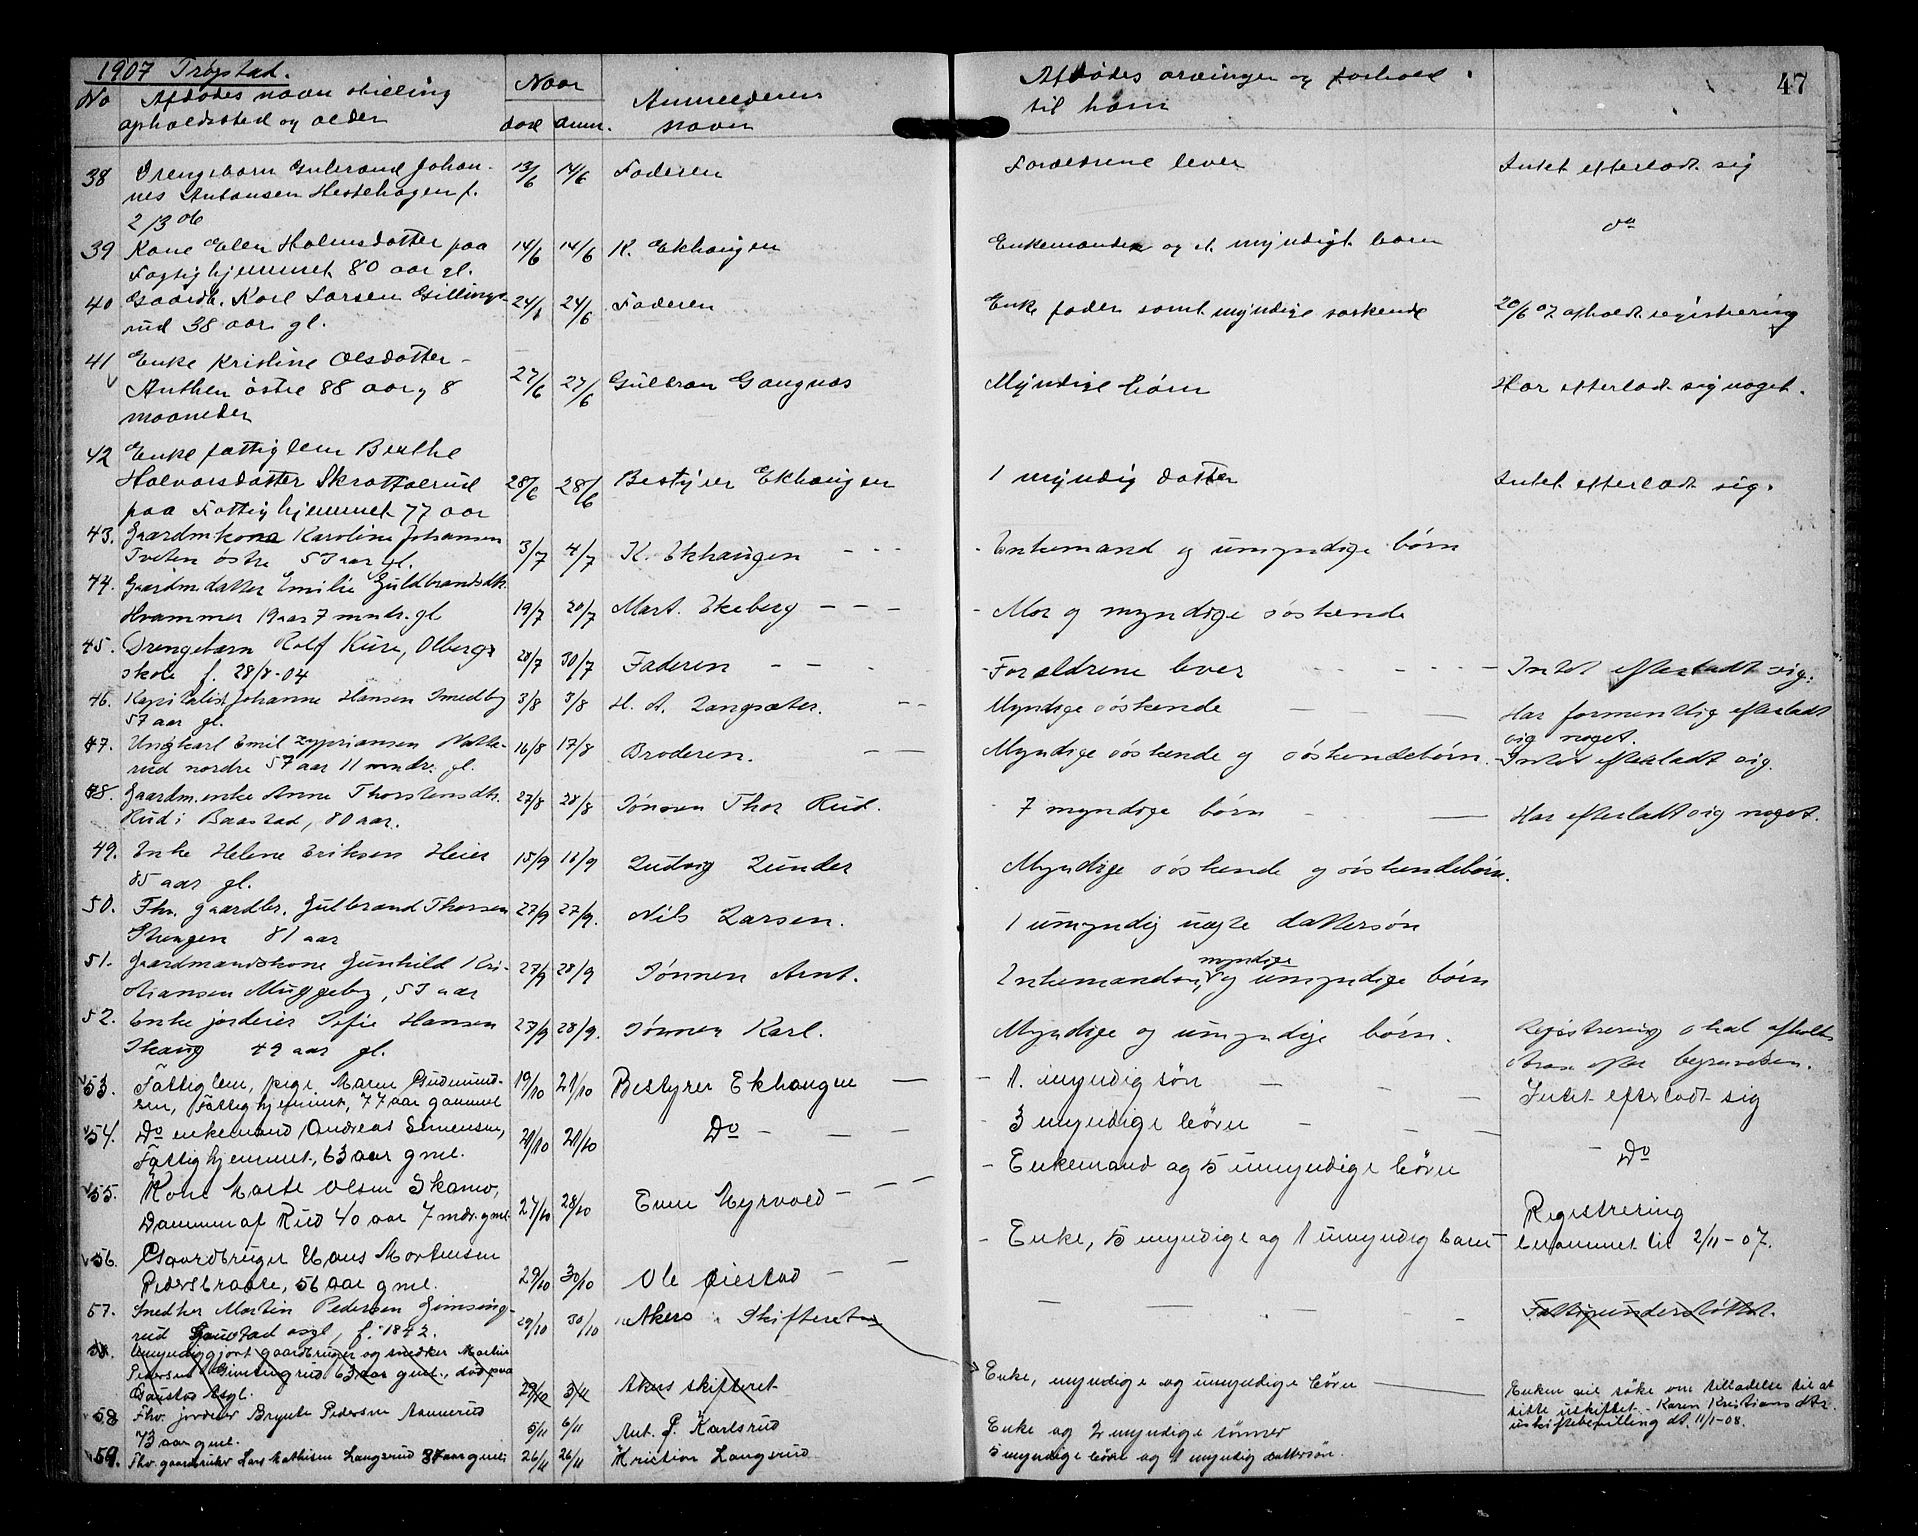 1907 Trøgstad.
No Afdødes navn stilling
opholdssted og alder
Naar
død anm.
Anmelderens
navn
Afdødes arvinger og forhold
til ham
47
38 Drengebarn Gulbrand Johan- 13/6 14/6 Faderen Forældrene lever Intet efterladt sig
nes Antonsen Hestehagen f.
2/3 06
39 Kone Elen Holmsdatter paa 14/6 14/6 K. Ekhaugen Enkemanden og et myndigt barn do
Fattighjemmet 80 aar gl.
40 Gaardb. Karl Larsen Gillings- 24/6 24/6 Faderen Enke fader samt myndige søskende 20/6 07 afholdt registrering
rud 38 aar gl.
41 Enke Kristine Olsdatter - 27/6 27/6 Gulbran Gangnæs Myndige børn Har efterladt sig noget.
Anthen østre 88 aar og 8
maaneder
42 Enke fattiglem Berthe
Halvorsdatter Skrattalrud 28/6 28/6 Bestyrer Ekhaugen 1 myndig datter Intet efterladt sig.
paa Fattighjemmet 77 aar
43. Gaardmkona Karoline Johansen 3/7 4/7 K. Ekhaugen - - - - Enkemand og umyndige børn
Tveten østre 53 aar gl.
44. Gaardmdatter Emilie Guldbrandsdtr.
Hrammer 19 aar 7 mndr. gl 19/7 20/7 Mart. Ekeberg - - - - Mor og myndige søskende
45. Drengebarn Rolf Kure, Olbergs
skole f. 28/8-04 28/7 30/7 Faderen - - - - Forældrene lever - - - - Intet efterladt sig.
46. Kapitalist Johanne Hansen Smedby 3/8 3/8 H. A. Langsæter. - - Myndige søskende - - - Har formentlig efterladt
57 aar gl. sig noget.
47. Ungkarl Emil Zypriansen Natte- 16/8 17/8 Broderen. - - Myndige søskende og søskendebørn. Intet efterladt sig.
rud nordre 57 aar 11 mndr. gl.
48. Gaardm.enke Anne Thorstensdtr. 27/8 28/8 Jønsen Thor Rud. 7 myndige børn - - Har efterladt sig noget.
Rud i Baastad, 80 aar.
49. Enke Helene Eriksen Heier 15/9 18/9 Ludvig Lunder Myndige søskende og søskendebørn.
85 aar gl.
50. Fhv. gaardbr. Gulbrand Thoresen 27/9 27/9. Nils Larsen. 1 umyndig uægte dattersøn
Stengen 81 aar
51. Gaardmandskone Gunhild Kri- 27/9 28/9 Jønnen Arnt. Enkemanden, myndige og umyndige børn
stiansen Muggeby, 53 aar
52. Enke jordeier Sofie Hansen 27/9 28/9. Jønnen Karl. Myndige og umyndige børn. Registrering skal afholdes
Skaug 49 aar gl. strax efter begravelsen.
53. Fattiglem, pige Maren Gudmund- 19/10 21/10 Bestyrer Ekhaugen — - 1. myndig søn - - Intet efterladt sig
sen, Fattighjemmet, 77 aar gammel
54. Do enkemand, Andreas Simensen, 21/10 21/10 Do - - - - 3 myndige børn - - - - Do
Fattighjemmet, 63 aar gml.
55. Kone Marte Olsen Skamo, 27/10 28/10 Even Myrvold - - - - Enkemand og 5 umyndige børn
Dammen af Rud 40 aar 7 mdr. gml.
56. Gaardbruger Hans Mortensen 29/10 30/10 Ole Øiestad - - - Enke, 5 myndige og 1 umyndig barn - Registrering
Pedersbraate, 56 aar gml. berammet til 2/11-07.
57. Snedker Martin Pedersen Gimsing- 29/10 30/10 Akers Skifteret - - - - - Fattigunderstøttet.
rud Gaustad asyl, f. 1842.
58. Umyndiggjort gaardbruger og snedker Martin
Pedersen Gimsingrud 63 aar gml., død paa
Gaustad Asyl. 29/10 Akers skifteret Enke, myndige og umyndige børn — Enken vil søke om tilladelse til at
sitte i uskiftet. - Karen Kristiansdtr.
uskiftebevilling dt. 11/1-08.
58 Fhv. jordeier Brynte Pedersen 5/11 6/11 Ant. P. Karlsrud Enke og 2 myndige sønner
73 aar gml.
59. Fhv. gaardbruker Lars Mathisen Langsrud 87 aar gml. 26/11 26/11 Kristian Langsrud 5 myndige børn og 1 myndig dattersøn.